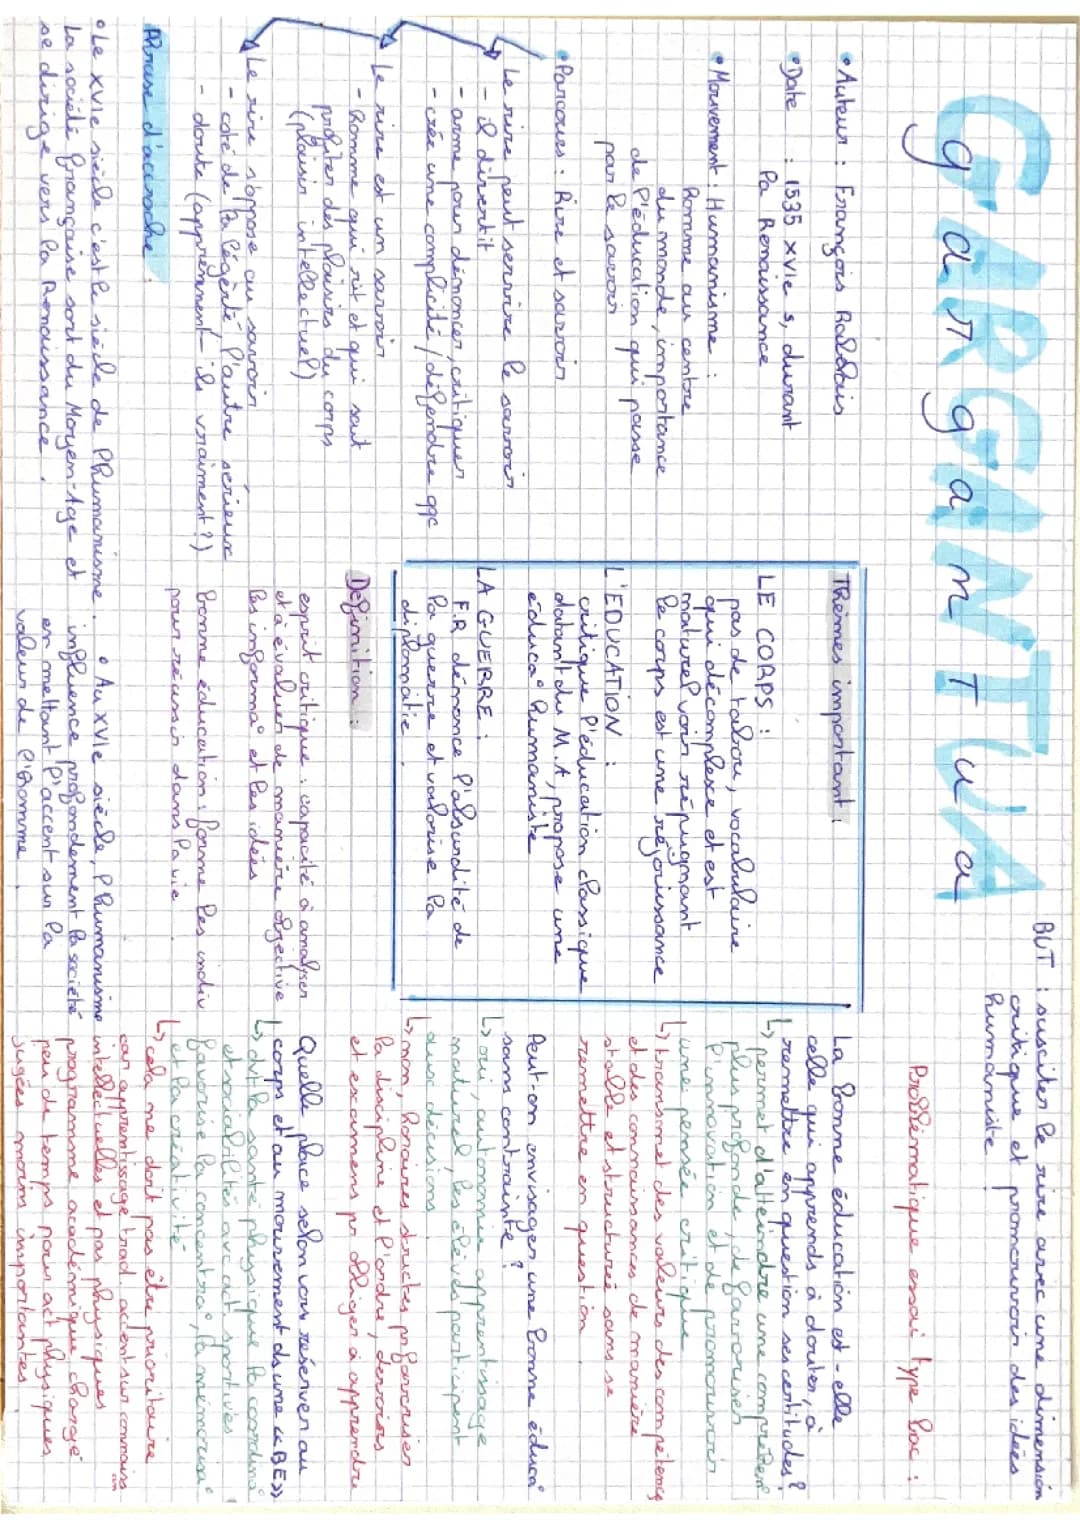 GARGANTUA
gargantua
BUT : susciter le rire avec une dimension
critique et promouvoir des idées
humaniste
• Auteur : François Rabelais
• Date : 1535 XVIe s, durant
la Renaissance
• Mouvement : Humanisme :
homme au centre
du monde, importance
de l'éducation qui passe
par le savoir
• Parcours : Rire et savoir
Le rire peut servir le savoir
- il divertit
- arme pour dénoncer, critiquer
- crée une complicité / défendre qqc
Le rire est un savoir
- homme qui rit et qui sait
profiter des plaisirs du corps
(plaisir intellectuel)
Le rire s'oppose au savoir
- coté de la légèrté, l'autre sérieux
- doute (apprennent-ils vraiment ?)
Thèmes important :
LE CORPS :
pas de tabou, vocabulaire
qui décomplexe et est
naturel voir répugnant
le corps est une réjouissance
L'EDUCATION :
critique l'éducation classique
datant du M.A, propose une
éduca° humaniste
LA GUERRE :
F.R dénonce l'absurdité de
la guerre et valorise la
diplomatie.
Définition :
esprit critique : capacité à analyser
et à évaluer de manière objective
les informa° et les idées
bonne éducation : forme les indiv
pour réussir dans la vie
Problématique essai type bac :
La bonne éducation est-elle
celle qui apprends à douter, à
remettre en question ses certitudes ?
↳ permet d'atteindre une compréhen
plus profonde, de favoriser
l'innovation et de promouvoir
une pensée critique
↳ transmet des valeurs des compétences
et des connaissances de manière
stable et structurée sans se
remettre en question
Peut-on envisager une bonne éduca°
sans contrainte ?
↳ oui, autonomie apprentissage
naturel, les élèves participent
aux décisions
↳ non, horaires structes pr favoriser
la discipline et l'ordre, devoirs
et examens pr obliger à apprendre
Quelle place selon vous réserver au
corps et au mouvement ds une « BE »
↳ dvt la santé physique la coordina°
et sociabilités avc act sportives
favorise la concentra°, la mémorisa°
et la créativité
↳ cela ne doit pas être prioritaire
car apprentissage trad. accent sur connaiss
intellectuelles et pas physiques
programme académique chargé
peu de temps pour act physiques
jugées moins importantes
Phrase d'accroche :
• Le XVIe siècle c'est le siècle de l'humanisme.
La société française sort du Moyen-Age et
se dirige vers la Renaissance.
• Au XVIe siècle, l'humanisme
influence profondement la société
en mettant l'accent sur la
valeur de l'homme.